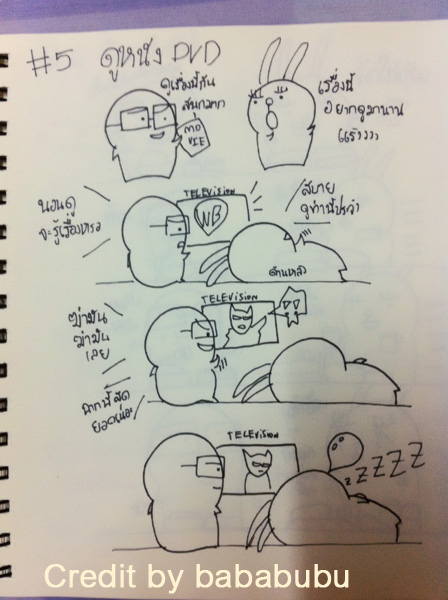 #5 ดูหนัง DVD
ดูเรื่องนี้กัน
สนุกมากก
MO
VIE
เรื่องนี้
อยากดูมานาน
แล้ววว
นอนดู
จะรู้เรื่องหรอ
TELEVISION
WB
สบาย
ดูท่านี้
ด้านหลัง
ฆ่ามัน
ฆ่ามัน
เลย
TELEVISION
ฉากนี้สุด
ยอดเนอะ
TELEVISION
zZZZZ
Credit by bababubu